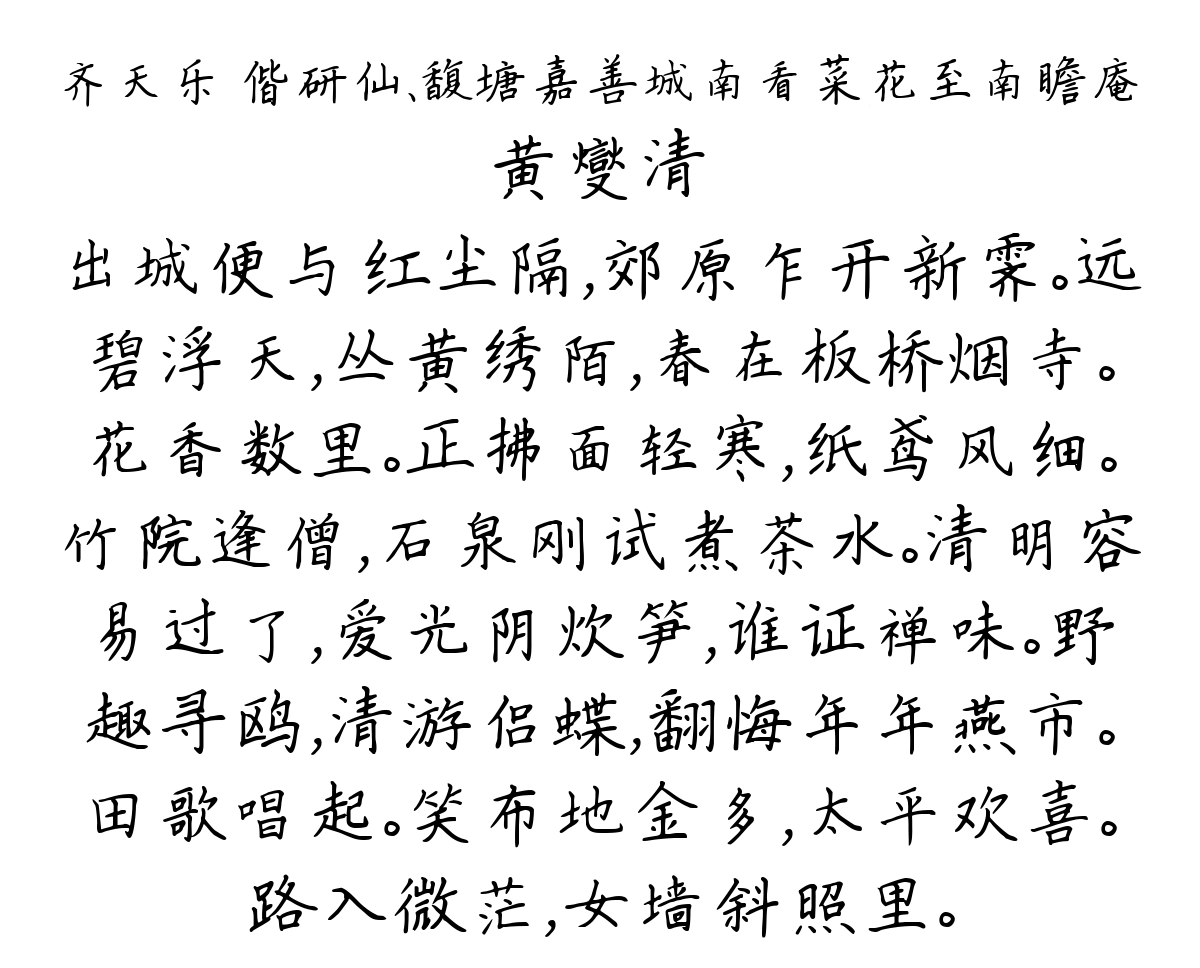 齐天乐 偕研仙、馥塘嘉善城南看菜花至南瞻庵
黄燮清
出城便与红尘隔,郊原乍开新霁。远
碧浮天,丛黄绣陌,春在板桥烟寺。
花香数里。正拂面轻寒,纸鸢风细。
竹院逢僧,石泉刚试煮茶水。清明容
易过了,爱光阴炊笋,谁证禅味。野
趣寻鸥,清游侣蝶,翻悔年年燕市。
田歌唱起。笑布地金多,太平欢喜。
路入微茫,女墙斜照里。